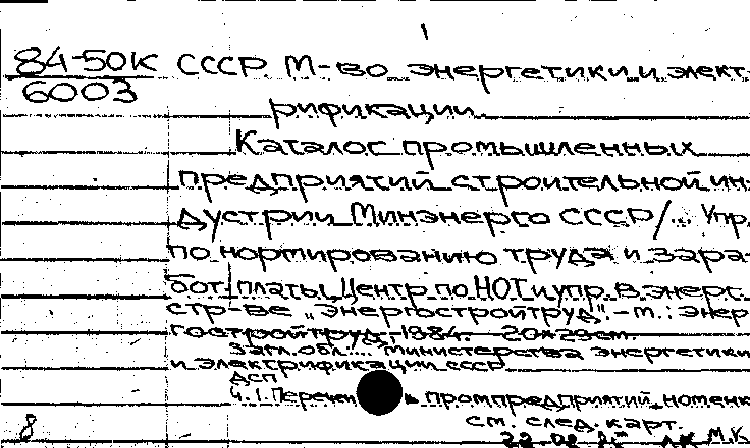 84-50к СССР. М-во энергетики и элект
6003
рификации.
Каталог промышленных
предприятий строительной ин
дустрии Минэнерго СССР/... Упр.
по нормированию труда и зара-
бот. платы, Центр по НОТ и упр. в энерг.
стр-ве „Энергостройтруд". - М.: Энер
гостройтруд, 1984. - 20×29 см.
Загл. обл.: ... Министерства энергетики
и электрификации СССР
ДСП
Ч. 1. Перечен промпредприятий, номенк
см. след. карт.
8